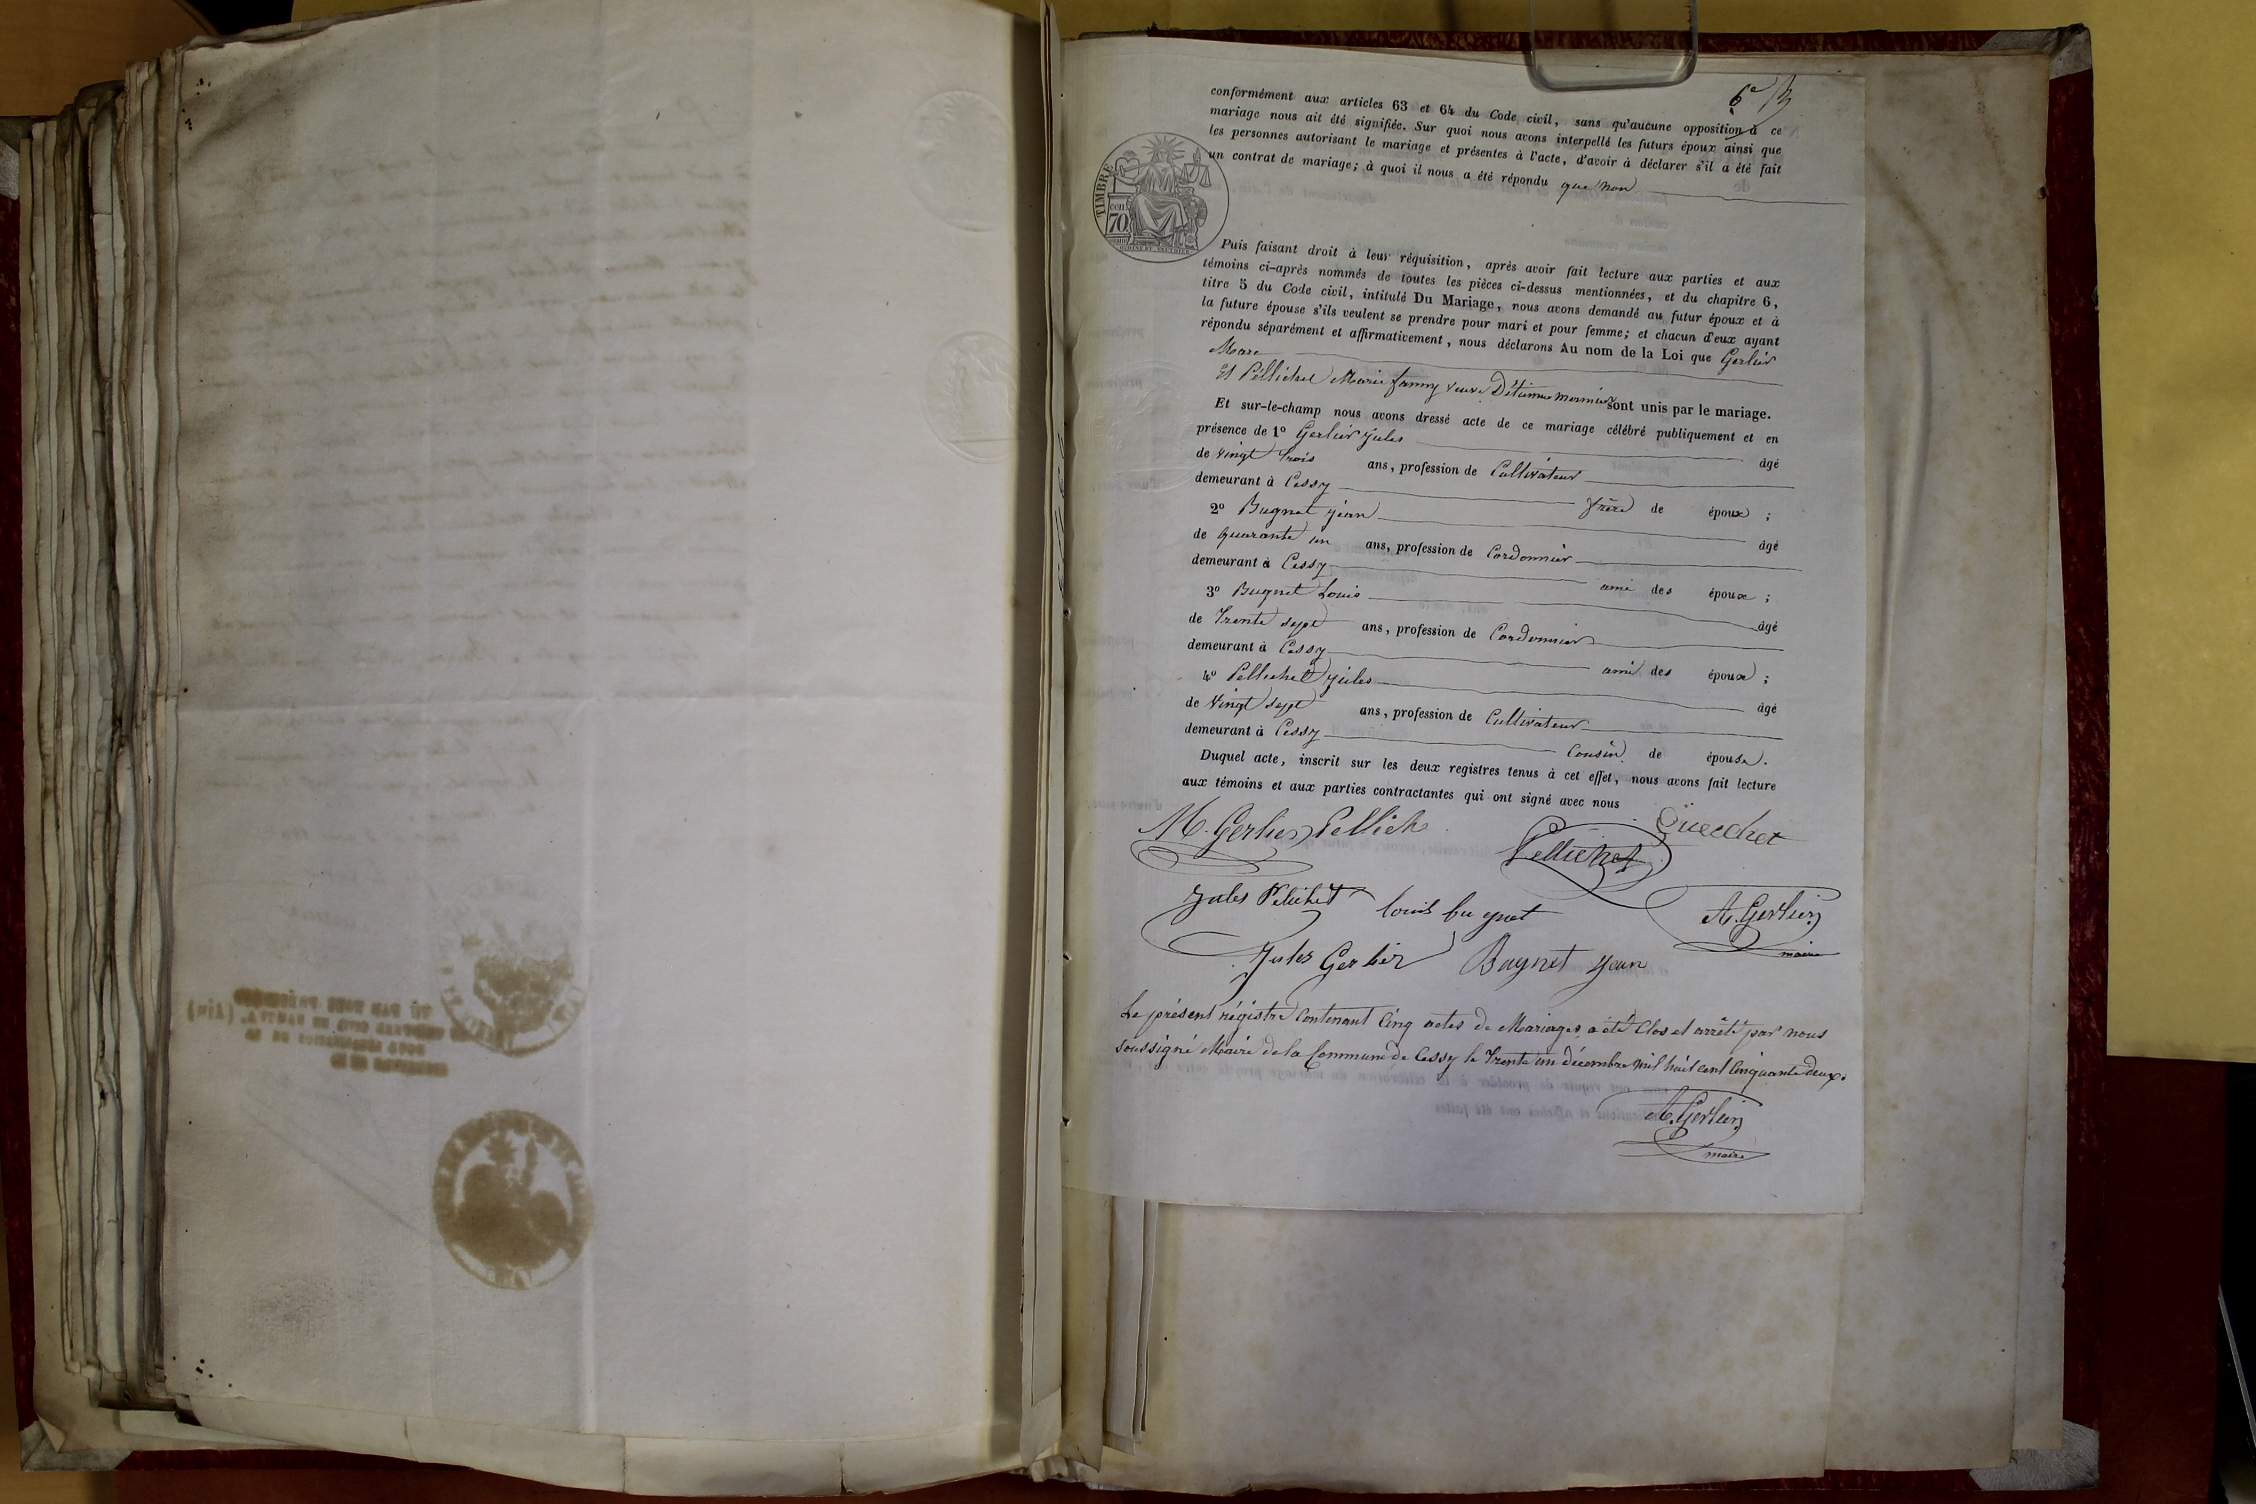 6e
conformément aux articles 63 et 64 du Code civil, sans qu'aucune opposition à ce
mariage nous ait été signifiée. Sur quoi nous avons interpellé les futurs époux ainsi que
les personnes autorisant le mariage et présentes à l'acte, d'avoir à déclarer s'il a été fait
un contrat de mariage; à quoi il nous a été répondu que non
TIMBRE
cen. 70
Puis faisant droit à leur réquisition, après avoir fait lecture aux parties et aux
témoins ci-après nommés de toutes les pièces ci-dessus mentionnées, et du chapitre 6,
titre 5 du Code civil, intitulé Du Mariage, nous avons demandé au futur époux et à
la future épouse s'ils veulent se prendre pour mari et pour femme; et chacun d'eux ayant
répondu séparément et affirmativement, nous déclarons Au nom de la Loi que Gerlier
Marc
Et Pellichet Marie fanny veuve D'étienne monnier sont unis par le mariage.
Et sur-le-champ nous avons dressé acte de ce mariage célébré publiquement et en
présence de 1º Gerlier jules âgé
de vingt trois ans, profession de Cultivateur
demeurant à Cessy frère de époux ;
2º Bugnet jean âgé
de quarante un ans, profession de Cordonnier
demeurant à Cessy ami des époux ;
3º Bugnet Louis âgé
de Trente sept ans, profession de Cordonnier
demeurant à Cessy ami des époux ;
4º Pellichet jules âgé
de vingt sept ans, profession de Cultivateur
demeurant à Cessy Cousin de épouse.
Duquel acte, inscrit sur les deux registres tenus à cet effet, nous avons fait lecture
aux témoins et aux parties contractantes qui ont signé avec nous
M. Gerlier Pellich
Pellichet
Jules Pelichet louis bugnet A. Gerlier
maire
Jules Gerlier Bugnet jean
Le présent régistre Contenant Cinq actes de Mariages a été Clos et arrêté par nous
soussigné Maire de la Commune de Cessy le Trente un décembre mil huit cent Cinquante deux.
A. Gerlier
maire